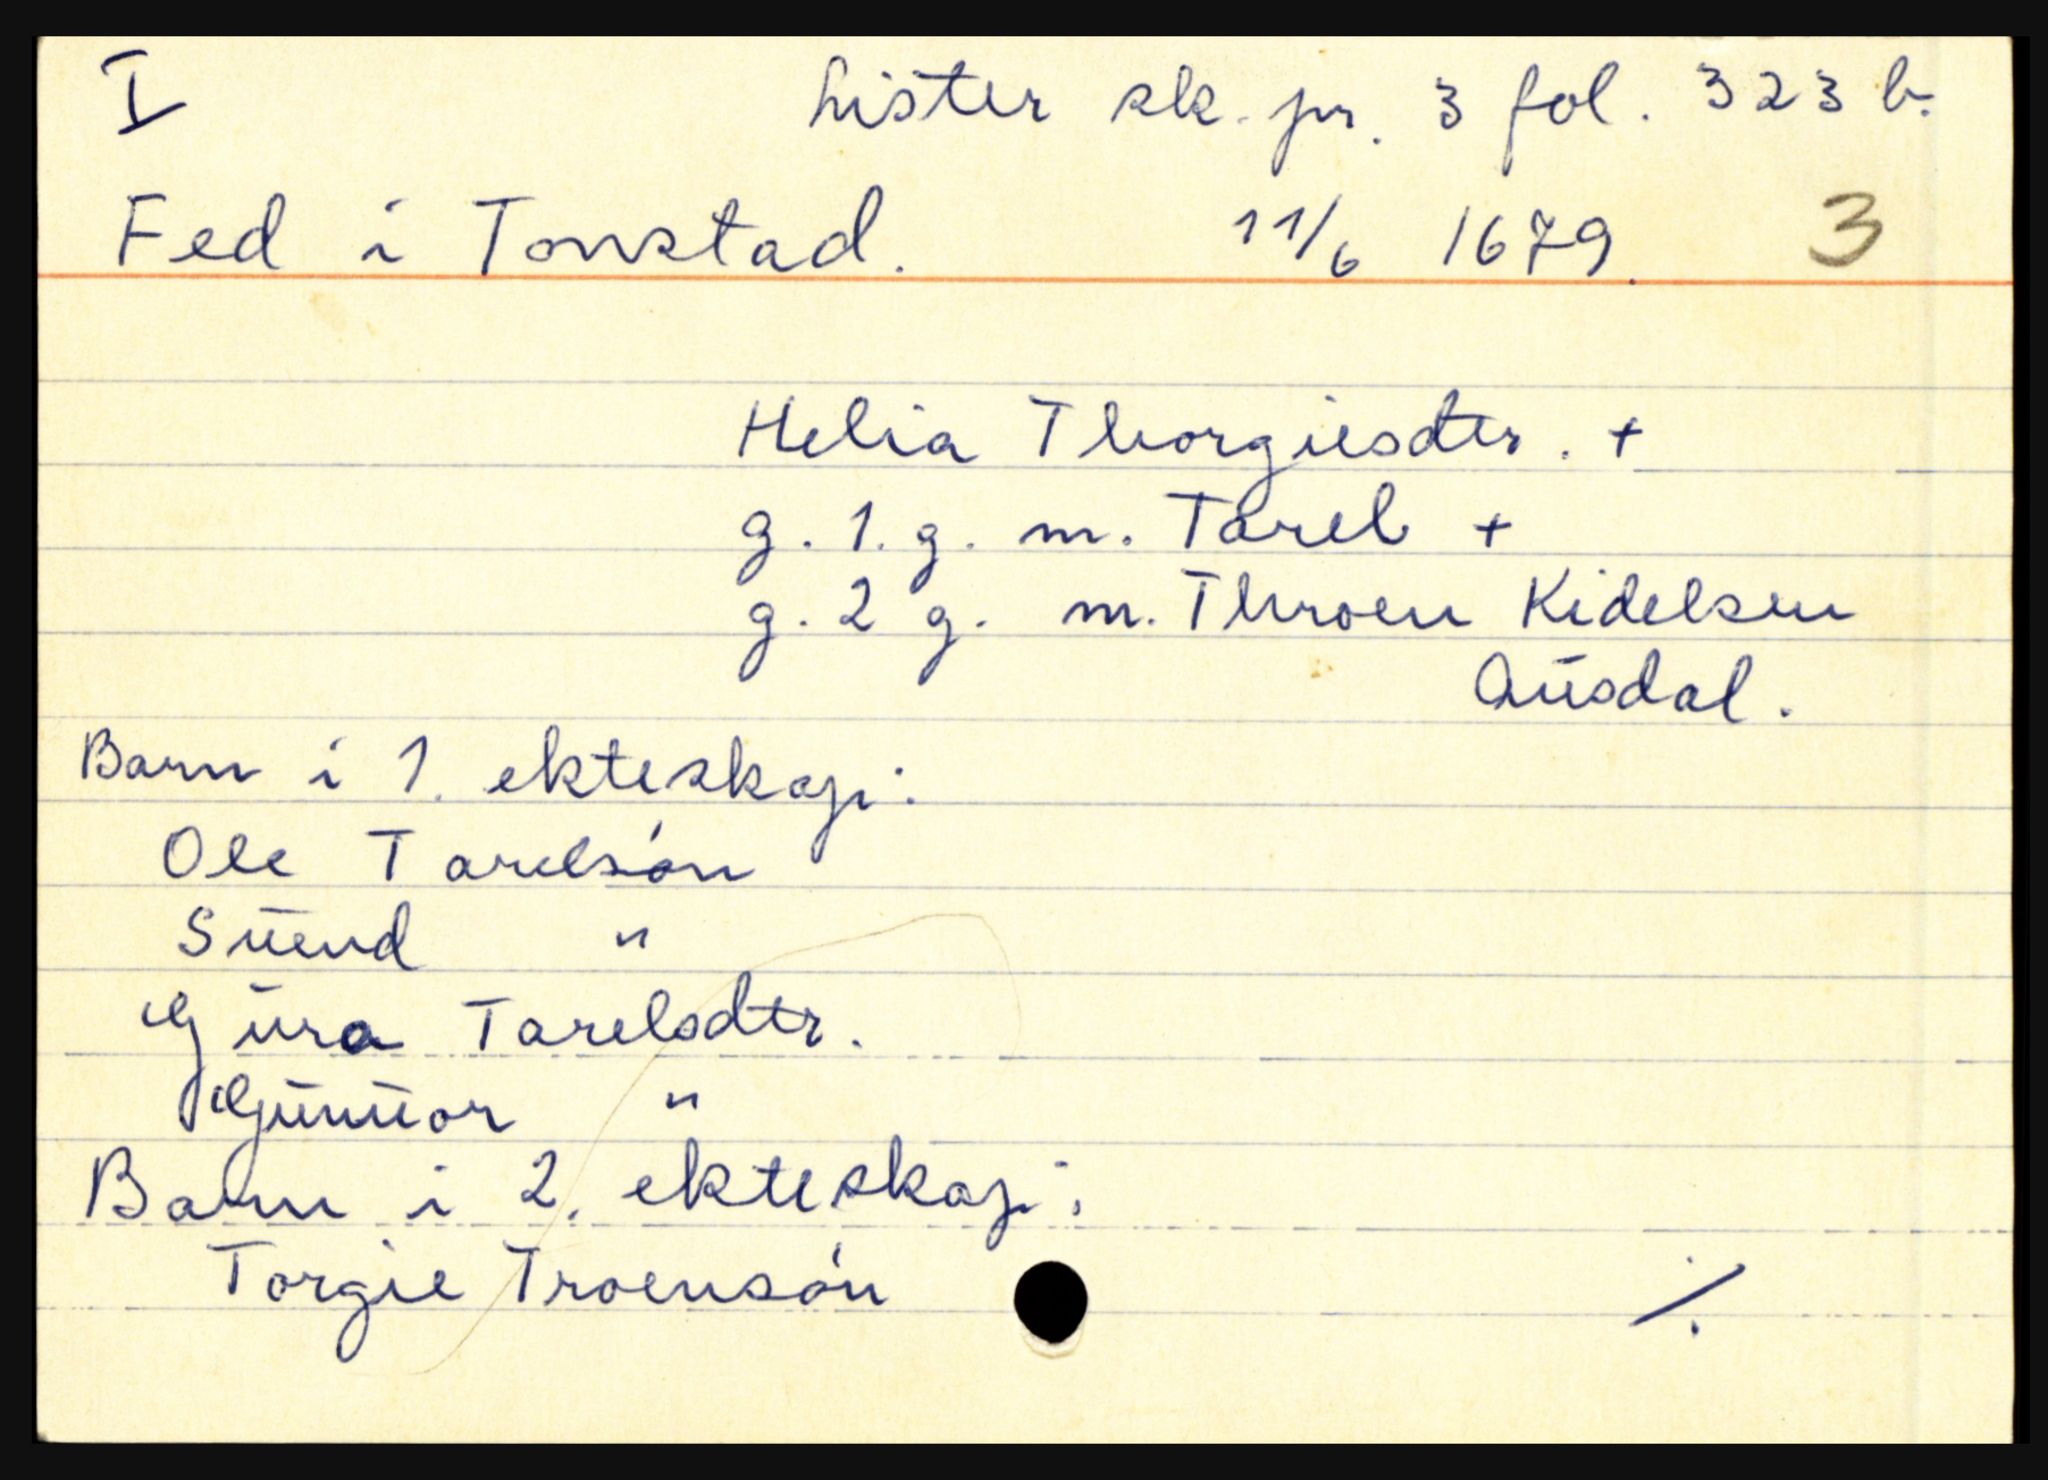 I Lister sk. pr. 3 fol. 323 b.
Fed i Tonstad. 11/6 1679. 3
Helia Thorgiesdtr. +
g. 1. g. m. Tarel +
g. 2 g. m. Throen Kidelsen
Ausdal.
Barn i 1. ekteskap:
Ole Tarelsón
Suend "
Gura Tarelsdtr.
Gunuor "
Barn i 2. ekteskap:
Torgie Troensón
⁒